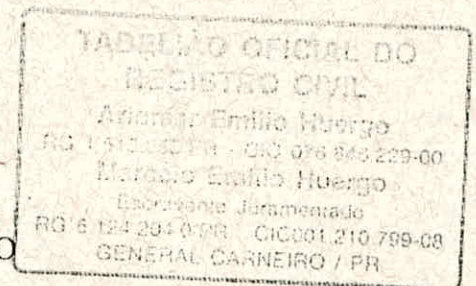 TABELIÃO OFICIAL DO
REGISTRO CIVIL
Emilio Huergo
RG CIC 076 846 229-00
Emilio Huergo
Escrevente Juramentado
RG 6 124 204 0/PR CIC001.210 799-08
GENERAL CARNEIRO / PR
O